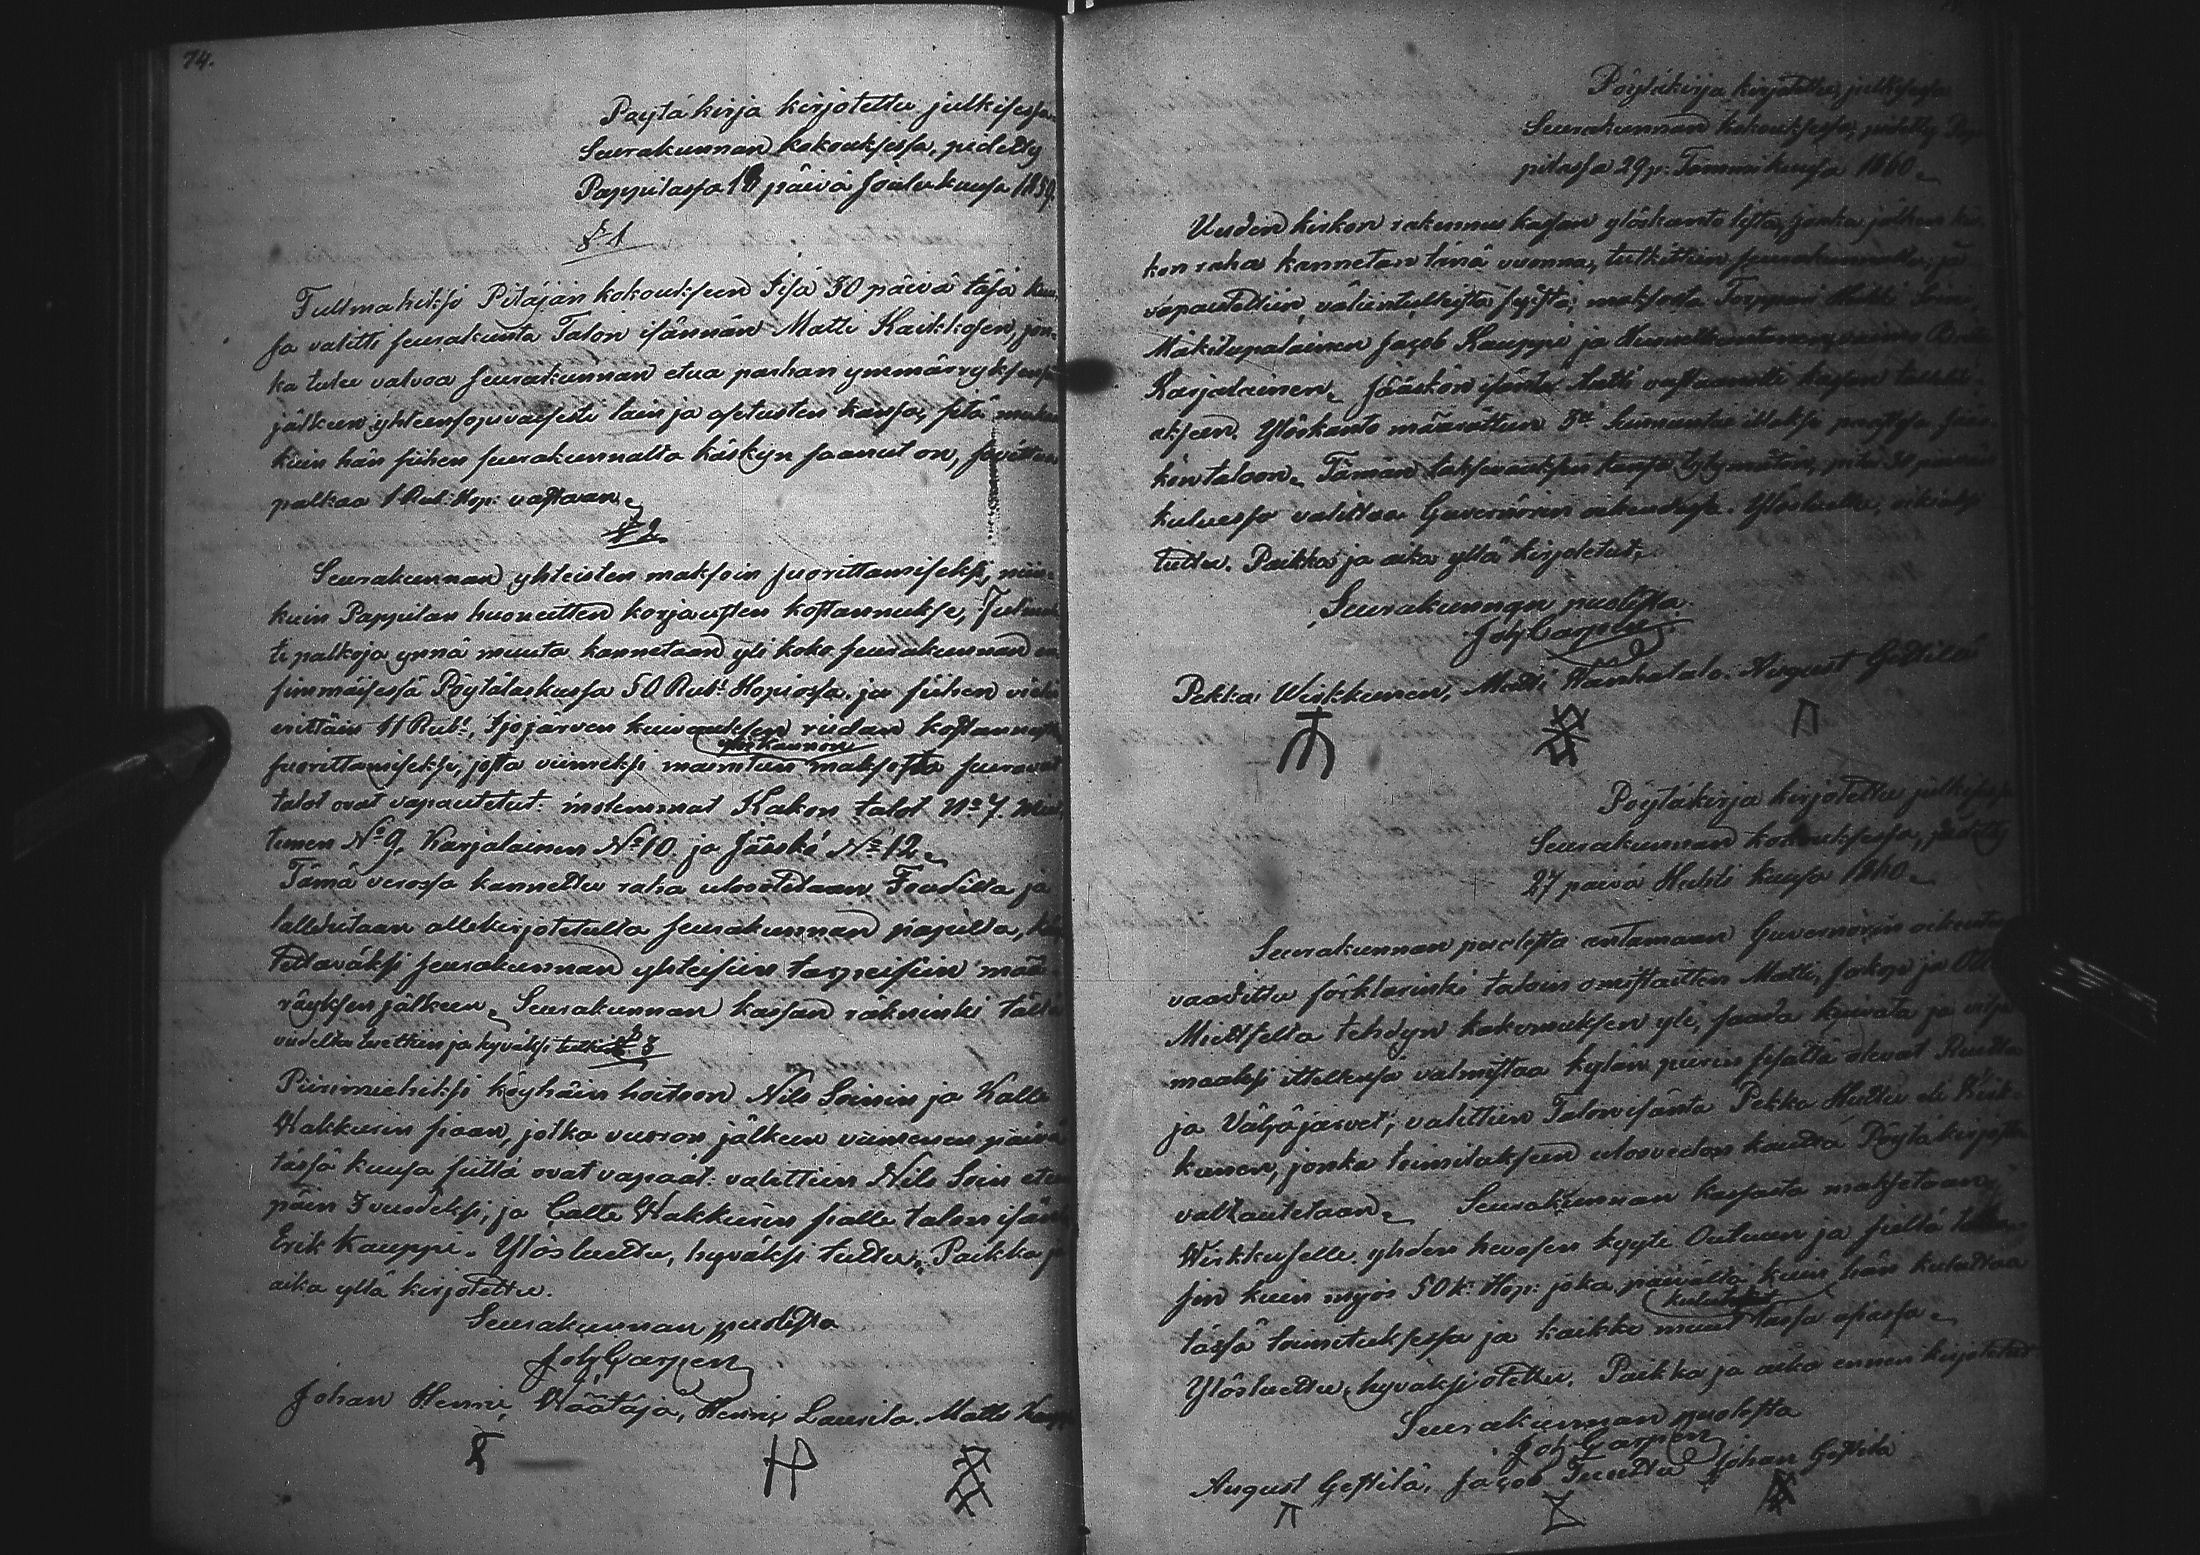 74.
Pöytäkirja kirjotettu julkisessa
Seurakunnan kokouksessa, pidetty
Pappilassa 18 päivä Joulukuusa 1859.
§ 1
Fullmahiksi Pitäjän kokoukseen Iisa 30 päivä täsä kuu-
sa valitti seurakunta Talon isännän Matti Kaikkosen, jon-
ka tulee valvoa seurakunnan etua parhan ymmärryksensä
jälkeen yhteensopivaisesti lain ja asetusten kanssa, sitä mukaan
kuin hän siihen seurakunnalta käskyn saanut on,
palkaa 1 Rub: Hop: vastaan.
§ 2
Seurakunnan yhteisten maksoin suorittamiseksi, niin-
kuin Pappilan huoneitten korjausten kostannukse,
ti palkoja ynnä muuta kannetaan yli koko seurakunnan en-
simmäisessä Pöytälaskussa 50 Rubl Hopiossa. ja siihen vielä
erittäin 11 Rubl, Ijojärven kuivauksen riidan kostannusten
yliskannon
suorittamiseksi, josta viimeksi mainitun maksosta seuraavat
talot ovat vapautetut: molemmat Kakon talot No 7.
tunen No 9, Karjalainen No 10 ja Jääskö No 12.
Tämä verossa kannettu raha ulosotetaan Foudilta ja
talletetaan allekirjotetulta seurakunnan papilta,
tettäväksi seurakunnan yhteisiin tarpeisiin mää-
räyksen jälkeen. Seurakunnan kassan räkninki tältä
vuodelta luettiin ja hyväksi tuttiin § 3
Piirimiehiksi köyhäin hoitoon Nils Soinin ja Kalle
Hakkusin siaan, jotka vuoron jälkeen viimeisenä päivä
tässä kuusa siittä ovat vapaat: valittiin Nils Soin eteen
päin 3 vuodeksi, ja Calle Hakkusin sialle talon isän
Erik Kauppi. Ylösluettu, hyväksi tuttu. Paikka ja
aika yllä kirjotettu.
Seurakunnan puolesta
Joh Carpen
Johan Henric Wäätäjä, Henric Laurila. Matts
Pöytäkirja kirjotettu julkisessa
Seurakunnan kokouksessa, pidetty Pap-
pilassa 29 p: Tammikuusa 1860.
Uuden kirkon rakennus kassan ylöskanto lista, jonka jälken kir-
kon raha kannetan tänä vuonna, tutkittiin seurakunnalta, ja
vapautettiin, väliintulleista syistä, maksosta Torppari
Mäkitupalainen Jacob Kauppi ja
Karjalainen. Jääskön isäntä Antti vastaanotti kassan talletta-
akseen. Ylöskanto määrättiin 5st Sunnuntai illaksi
kön taloon. Tämän tutkinnoksen kanssa tytymätöin, pitä 30 päivän
kuluessa valittaa Guvernörin oikeudessa. Ylösluettu, oikiaksi
tuttu. Paikka ja aika yllä kirjotetut.
Seurakunnan puolesta
Joh Carpen
Pekka Wirkkunen, Matti Wanhatalo. August Gestilä
Pöytäkirja kirjotettu julkisessa
Seurakunnan kokouksessa, pidetty
27 päivä Huhti kuusa 1860.
Seurakunnan puolesta antamaan Guvernörin oikeutta
vaadittu förklarinki taloin omistaitten Matti, Jaakop ja
Mietteltä tehdyn hakemuksen yli, saada kuivata ja
maaksi ittelleensä valmistaa kylän piirin sisällä olevat
ja Väljäjärvet, valittiin Talon isäntä Pekka Huttu eli Wirk-
kunen, jonka toimitukseen ulosvedon kautta Pöytäkirjasta
valtautetaan. Seurakunnan kassasta maksetaan
Wirkkuselle yhden hevosen kyyti Ouluun ja sieltä
sin kuin myös 50 k: Hop: joka päivältä kuin hän kuluttaa
kulutukset
tässä toimituksessa ja kaikki muut tässä asiassa.
Ylösluettu, hyväksi otettu. Paikka ja aika ennen kirjotetut
Seurakunnan puolesta
Joh Carpen
August Gestilä, Jacob Johan Gestilä